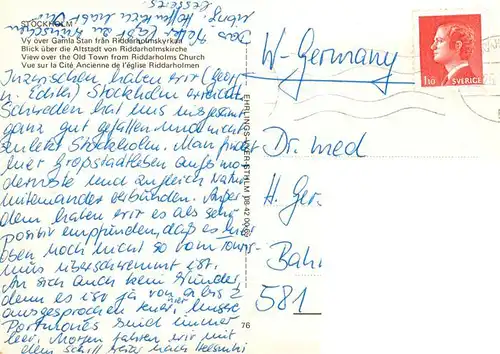 STOCKHOLM
Vy över Gamla Stan från Riddarholmskyrkan
Blick über die Altstadt von Riddarholmskirche
View over the Old Town from Riddarholms Church
Vue sur la Cité Ancienne de l'église Riddarholmen
Inzwischen haben wir
Stockholm erreicht.
Schweden hat uns insgesamt
ganz gut gefallen und nicht
zuletzt Stockholm. Man findet
hier Großstadtleben aufs mo-
dernste und zugleich Natur
miteinander verbunden. Außer
dem haben wir es als sehr
positiv empfunden, daß es hier
oben noch nicht so vom Touris-
mus überschwemmt ist.
An sich auch kein Wunder,
denn es ist ja von A bis Z
ausgesprochen teuer, unsere
hier
Portmonés sind immer
leer. Morgen fahren wir mit
dem Schiff nach Helsinki
76
W-Germany
110
SVERIGE
Dr. med
H. Ger
Bahn
581